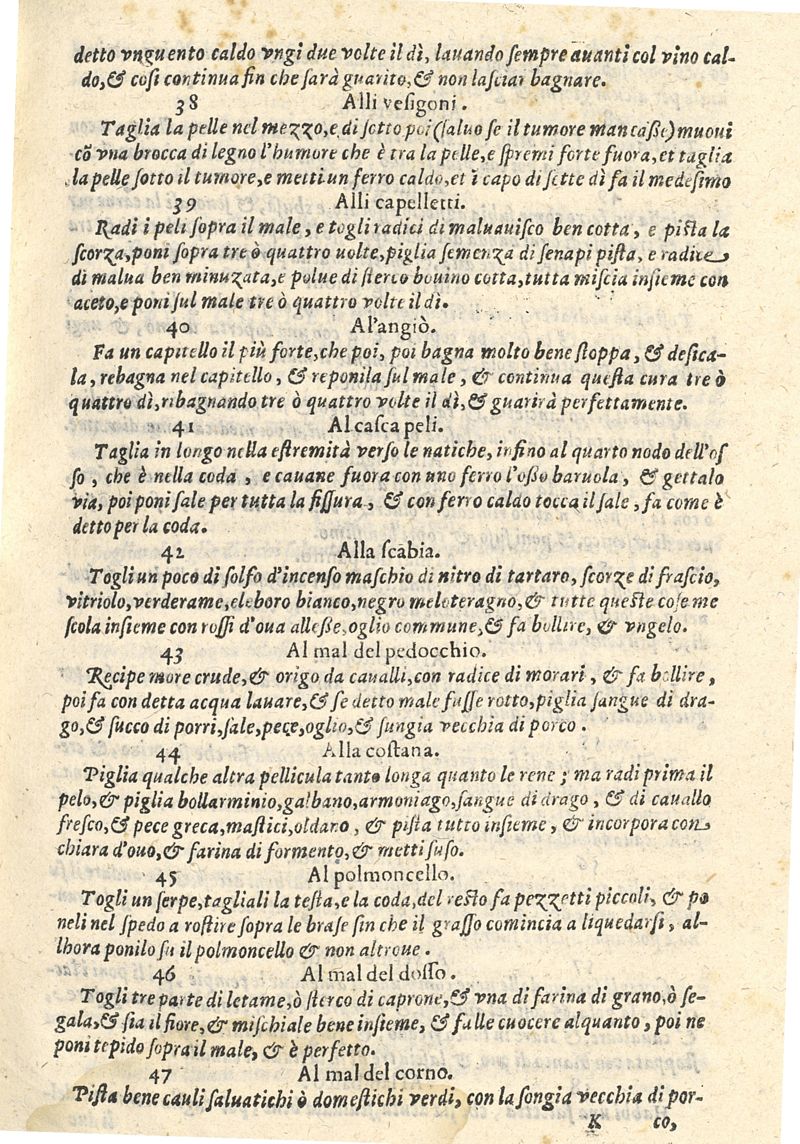 detto vnguento caldo vngi due volte il dì, lauando ſempre auanti col vino cal-
do, & coſi continua fin che ſarà guarito, & non laſciar bagnare.
38 Alli veſigoni.
Taglia la pelle nel mezzo, e di ſotto poi (ſaluo ſe il tumore mancaſſe) muoui
cõ vna brocca di legno l'humore che è tra la pelle, e ſpremi forte fuora, et taglia
la pelle ſotto il tumore, e metti un ferro caldo, et ĩ capo di ſette dì fa il medeſimo
39 Alli capelletti.
Radi i peli ſopra il male, e togli radici di maluauiſco ben cotta, e piſta la
ſcorza, poni ſopra tre ò quattro uolte, piglia ſemenza di ſenapi piſta, e radice
di malua ben minuzata, e polue di ſterco bouino cotta, tutta miſcia inſieme con
aceto, e poni ſul male tre ò quattro volte il dì.
40 Al'angiò.
Fa un capitello il più forte, che poi, poi bagna molto bene ſtoppa, & deſica-
la, rebagna nel capitello, & reponila ſul male, & continua queſta cura tre ò
quattro dì, ribagnando tre ò quattro volte il dì, & guarirà perfettamente.
41 Al caſca peli.
Taglia in longo nella eſtremità verſo le natiche, infino al quarto nodo dell'oſ
ſo, che è nella coda, e cauane fuora con uno ferro l'oſſo baruola, & gettalo
via, poi poni ſale per tutta la fiſſura, & con ferro caldo tocca il ſale, fa come è
detto per la coda.
42 Alla ſcabia.
Togli un poco di ſolfo d'incenſo maſchio di nitro di tartaro, ſcorze di fraſcio,
vitriolo, verderame, eleboro bianco, negro meloteragno, & tutte queſte coſe me
ſcola inſieme con roſſi d'oua alleſſe, oglio commune, & fa bollire, & vngelo.
43 Al mal del pedocchio.
Recipe more crude, & origo da caualli, con radice di morari, & fa bollire,
poi fa con detta acqua lauare, & ſe detto male fuſſe rotto, piglia ſangue di dra-
go, & ſucco di porri, ſale, pece, oglio, & ſungia vecchia di porco.
44 Alla coſtana.
Piglia qualche altra pellicula tanto longa quanto le rene; ma radi prima il
pelo, & piglia bollarminio, galbano, armoniago, ſangue di drago, & di cauallo
freſco, & pece greca, maſtici, oldano, & piſta tutto inſieme, & incorpora con
chiara d'ouo, & farina di formento, & metti ſuſo.
45 Al polmoncello.
Togli un ſerpe, tagliali la teſta, e la coda, del reſto fa pezzetti piccoli, & po
neli nel ſpedo a roſtire ſopra le braſe ſin che il graſſo comincia a liquedarſi, al-
lhora ponilo ſu il polmoncello & non altroue.
46 Al mal del doſſo.
Togli tre parte di letame, ò ſterco di caprone, & vna di farina di grano, ò ſe-
gala, & ſia il fiore, & miſchiale bene inſieme, & falle cuocere alquanto, poi ne
poni tepido ſopra il male, & è perfetto.
47 Al mal del corno.
Piſta bene cauli ſaluatichi ò domeſtichi verdi, con la ſongia vecchia di por-
K co,